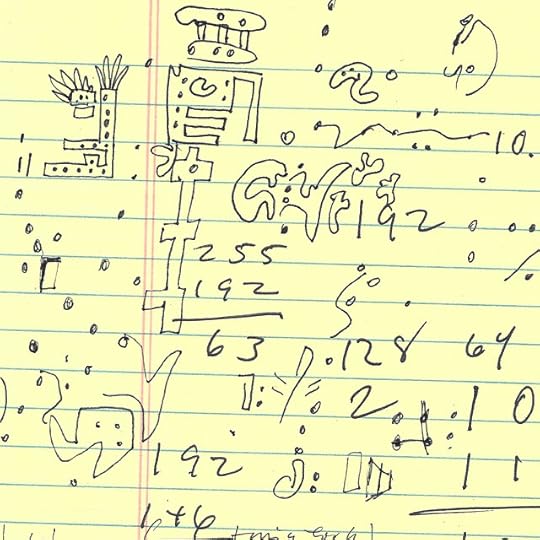 10.
192
255
192
63 .128 64
2 1 0
192 1 1